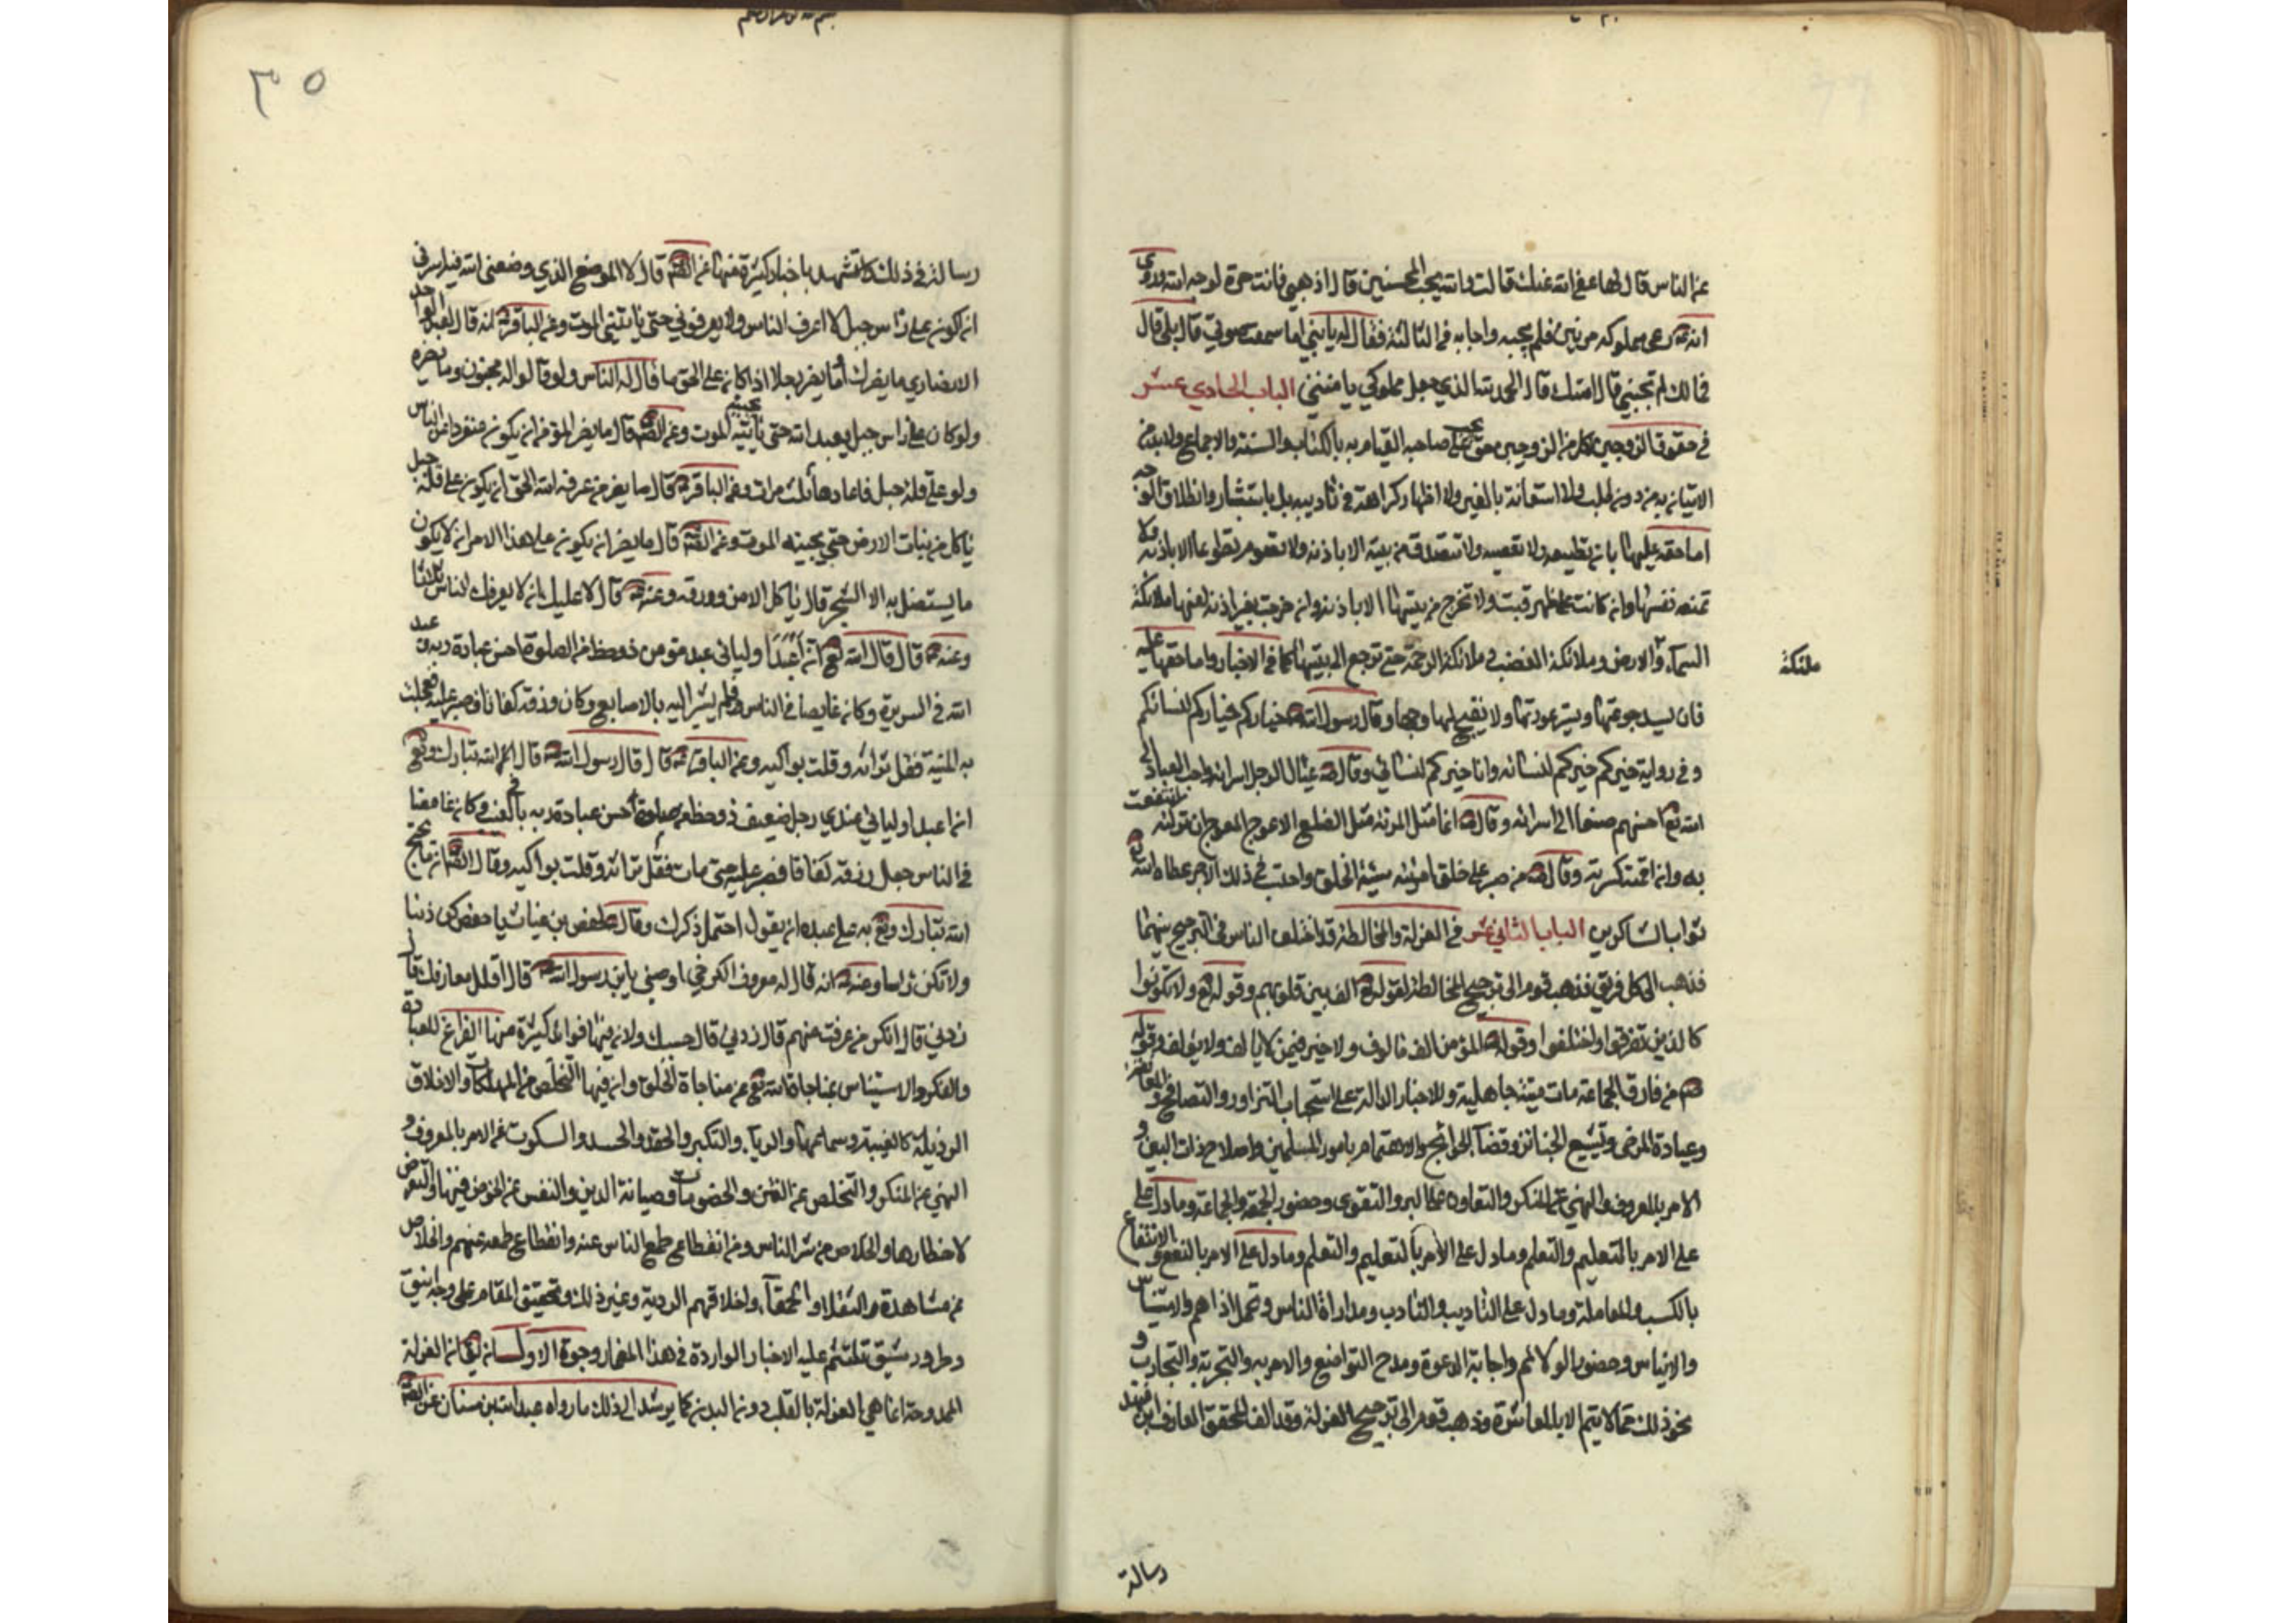 عن الناس قال لها عفى الله عنك قالت والله يحب المحسنين قال اذهبي فانت حرة لوجه الله وروي
انه دعى مملوكه مرتين فلم يجبه واجابه في الثالثة فقال له يا بني اما سمعت صوتي قال بلى قال
فما لك لم تجبني قال امنتك قال الحمد لله الذي جعل مملوكي يامنني الباب الحادي عشر
في حقوق الزوجين لكل من الزوجين حق يجب على صاحبه القيام به بالكتاب والسنة والاجماع ولابد من
الاتيان به من دون طلب ولا استعانة بالغير ولا اظهار كراهة في تاديبه بل باستبشار وانطلاق الوجه
اما حقه عليها بان تطيعه ولا تعصيه ولا تتصدق من بيته الا باذنه ولا تصوم تطوعا الا باذنه ولا
تمنعه نفسها وان كانت على ظهر قتب ولا تخرج من بيتها الا باذنه وان خرجت بغير اذنه لعنها ملائكة
السمآء والارض وملائكة الغضب وملائكة الرحمة حتى ترجع الى بيتها كما في الاخبار واما حقها عليه
ملئكة
فان يسد جوعتها ويستر عورتها ولا يقبح لها وجها وقال رسول الله ص خياركم خياركم لنسائكم
وفي رواية خيركم خيركم لنسائه وانا خيركم لنسائي وقال ص عيال الرجل اسرائه واحب العباد الى
الله تع احسنهم صنعا الى اسرائه وقال ص انما مثل المرئة مثل الضلع الاعوج المعوج ان تركته انتفعت
به وان اقمته كسرته وقال ص من صبر على خلق امرئته سيئة الخلق واحتسب في ذلك الاجر عطاه الله تع
ثواب الشاكرين الباب الثاني عشر في العزلة والمخالطة قد اختلف الناس في الترجيح بينهما
فذهب الى كل فريق فذهب قوم الى ترجيح المخالطة لقوله تع الف بين قلوبهم وقوله تع ولا تكونوا
كالذين تفرقوا واختلفوا وقوله ص المؤمن الف مالوف ولا خير فيمن لا يالف ولا يؤلف وقوله
ص من فارق الجماعة مات ميتة جاهلية وللاخبار الدالة على استحباب التزاور والتصافح والمعانقة
وعيادة المرضى وتشييع الجنائز وقضآء الحوائج والاهتمام بامور المسلمين واصلاح ذات البين و
الامر بالمعروف والنهي عن المنكر والتعاون على البر والتقوى وحضور الجمعة والجماعة وما دل على
على الامر بالتعليم والتعلم وما دل على الامر بالتعليم والتعلم وما دل على الامر بالنفع والانتفاع
بالكسب والمعاملة وما دل على التاديب والتادب ومداراة الناس وتحمل اذاهم والاستيناس
والايناس وحضور الولائم واجابة الدعوة ومدح التواضع والامر به والتجربة والتجارب و
نحو ذلك مما لا يتم الا بالمعاشرة وذهب قوم الى ترجيح العزلة وقد الف المحقق العارف ابن فهد
رسالة
٣٥
رسالة في ذلك واستشهد باخبار كثيرة فمنها عن الصم قال لا الموضع الذي وضعني الله فيه لسرني
ان اكون على راس جبل لا اعرف الناس ولا يعرفوني حتى ياتيني الموت وعن الباقر انه قال لعبد الواحد
الانصاري ما يضرك اما يضر رجلا اذا كان على الحق ما قال له الناس ولو قالوا له مجنون وما يضره
ولو كان على راس جبل يعبد الله حتى ياتيه يجيئه الموت وعن الصم قال ما يضر المؤمن ان يكون منفردا عن الناس
ولو على قلة جبل فاعادها ثلث مرات وعن الباقر قال ما يضر من عرفه الله الحق ان يكون على قلة جبل
ياكل من نبات الارض حتى يجيئه الموت وعن الصم قال ما يضر ان يكون على هذا الامر ان لا يكون
ما يستضل به الا الشجر قال ياكل الا من وورقه وعنه قال لا عليك ان لا يعرفك الناس ثلاثا
وعنه قال قال الله تع ان اغبط اوليائي عبد مؤمن ذو حظ من الصلوة احسن عبادة ربه وعبد
الله في السريرة وكان غايصا في الناس فلم يشر اليه بالاصابع وكان رزقه كفافا فصبر عليه فعجلت
به المنية فقل تراثه وقلت بواكيه وعن الباقر قال قال رسول الله ص قال الله تبارك وتع
ان اغبط اوليائي عندي رجل ضعيف ذو حظ من صلوة احسن عبادة ربه بالغيب وكان غامضا
في الناس جعل رزقه كفافا فصبر عليه حتى مات فقل تراثه وقلت بواكيه وقال الصم ان مما يحتج
الله تبارك وتع به على عبده ان يقول احتمل ذكرك وقال لحفص بن غياث يا حفص كن ذنبا
ولا تكن راسا وعنه انه قال له معروف الكرخي اوصني يابن رسول الله قال اقلل معارفك قال
زدني قال انكر من عرفت منهم قال زدني قال حسبك ولان فيها فوائد كثيرة منها الفراغ للعبادة
والفكر والاستيناس بمناجاة الله تع عن مناجاة الخلق وان فيها التخلص من المهلكات والاخلاق
الرذيلة كالغيبة وسماعها والريآء والتكبر والحقد والحسد والسكوت عن الامر بالمعروف و
النهي عن المنكر والتخلص عن الفتن والخصومات وصيانة الدين والنفس عن الخوض فيها والتعرض
لاخطارها والخلاص من شر الناس ومن انقطاع طمع الناس عنه وانقطاع طمعه عنهم والخلاص
عن مشاهدة الثقلاء والحمقآء واخلاقهم الردية وغير ذلك وتحقيق المقام على وجه انيق
وطرور شيق تلتئم عليه الاخبار الواردة في هذا المضمار وجوه الاول ان العزلة
الممدوحة انما هي العزلة بالقلب دون البدن كما يرشد الى ذلك ما رواه عبد الله بن سنان عن الصم